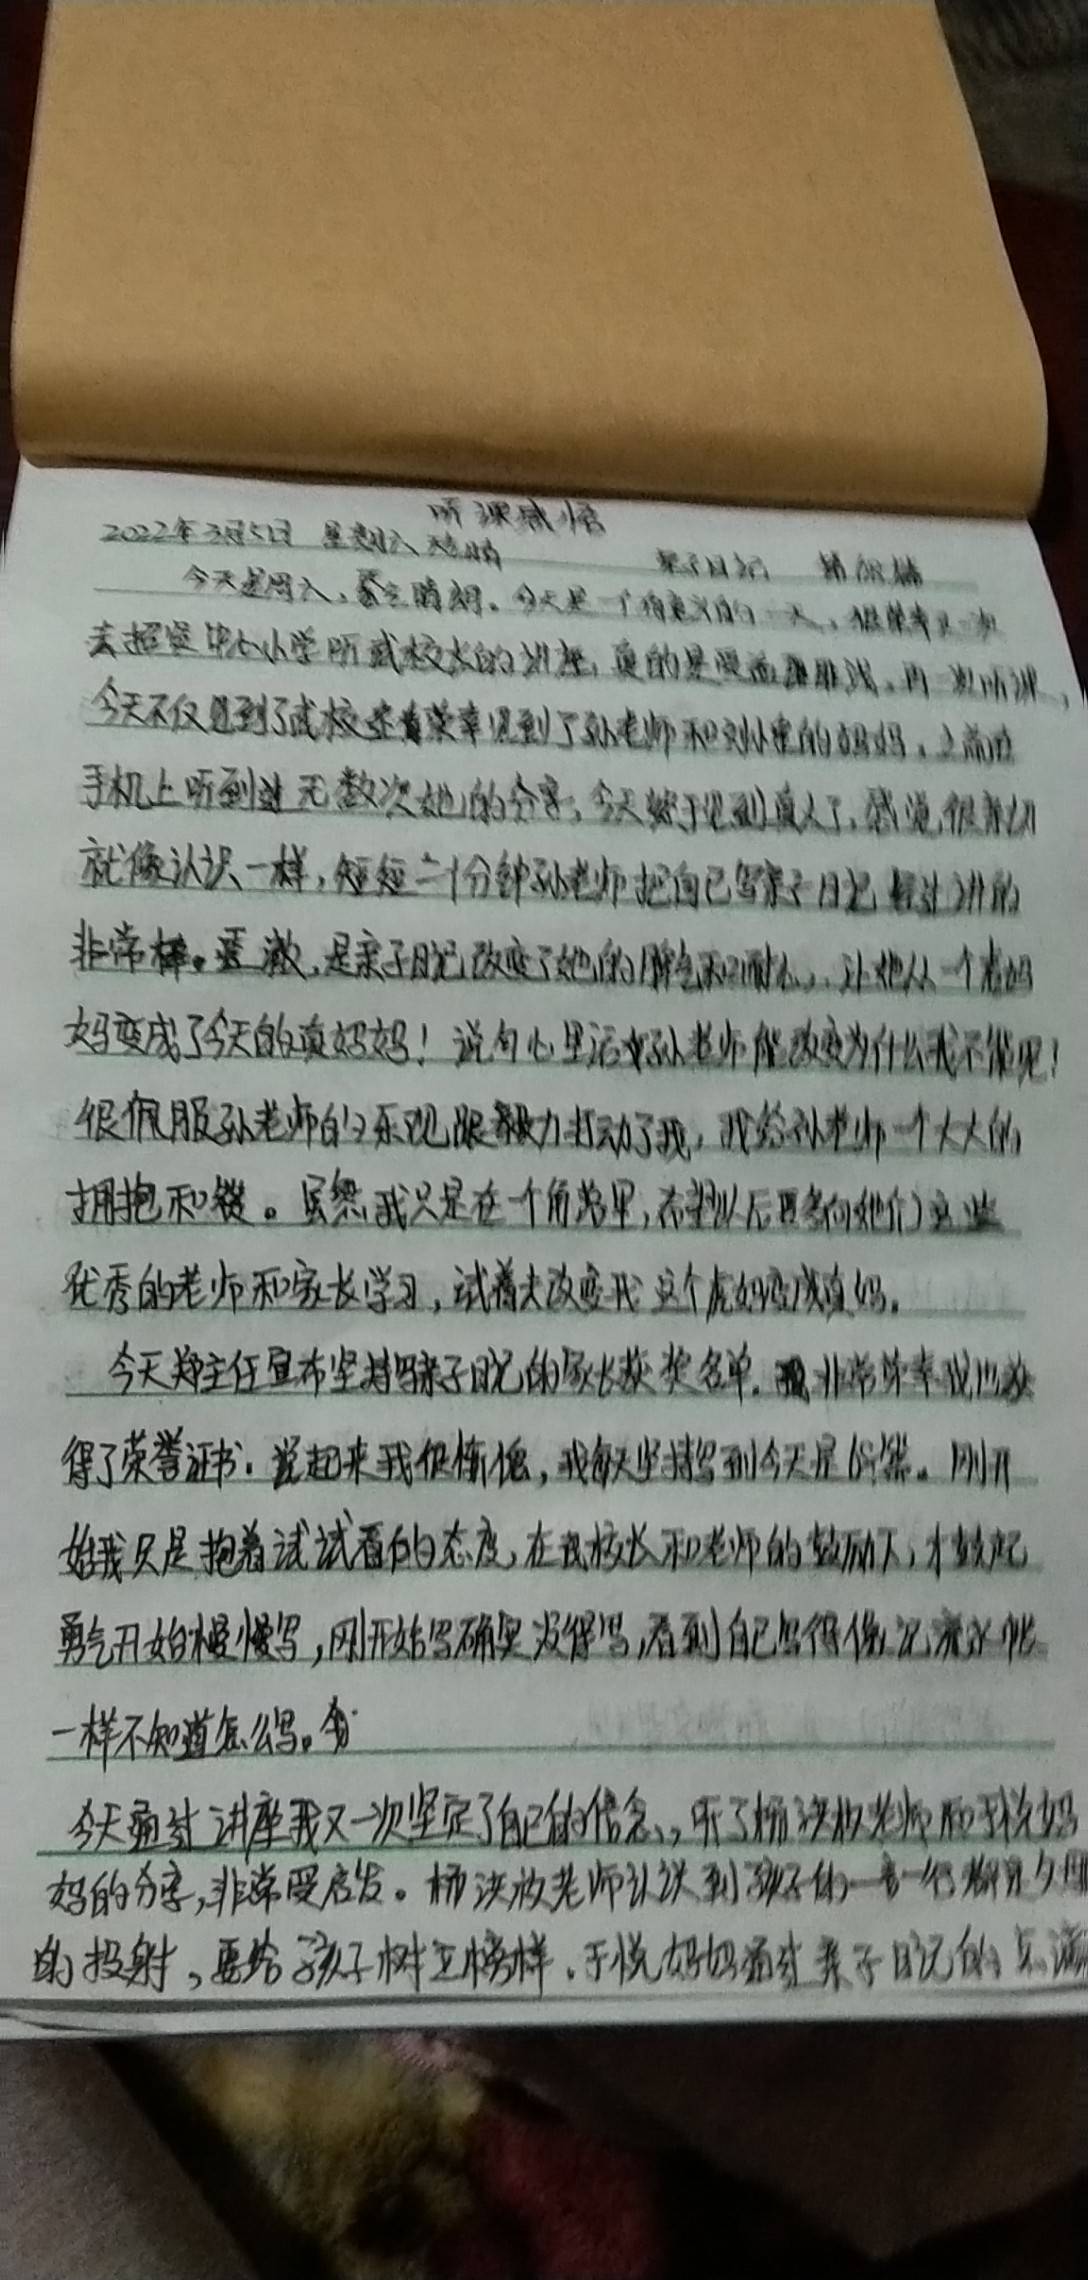 听课感悟
2022年3月5日 星期六 天气晴 亲子日记
今天是周六,天气晴朗。今天是一个有意义的一天,很荣幸又一次
去 中心小学听武校长的讲座,真的是受益匪浅。再一次听课,
今天不仅见到了武校还有荣幸见到了孙老师和刘 的妈妈,之前在
手机上听到过无数次她的分享,今天终于见到真人了,感觉很亲切
就像认识一样,短短二十分钟孙老师把自己写亲子日记 讲的
非常棒。 是亲子日记改变了她的脾气和耐心,让她从一个虎妈
妈变成了今天的真妈妈!说句心里话 孙老师能改变为什么我不能呢!
很佩服孙老师的 毅力打动了我,我给孙老师一个大大的
拥抱和赞。虽然我只是在一个角落里,希望以后更多向她们这些
优秀的老师和家长学习,试着去改变我这个虎妈变成真妈。
今天郑主任宣布坚持写亲子日记的家长获奖名单,我非常荣幸我也获
得了荣誉证书。说起来我很惭愧,我每天坚持写到今天是 篇。刚开
始我只是抱着试试看的的态度,在武校长和老师的鼓励下,才鼓起
勇气开始慢慢写,刚开始写确实没得写,看到自己写得像记流水帐
一样不知道怎么写。
今天通过讲座我又一次坚定了自己的信念,听了杨 老师和于悦妈
妈的分享,非常受启发。杨 老师认识到孩子的一言一行都是父母
的投射,要给孩子树立榜样。于悦妈妈通过亲子日记的点滴